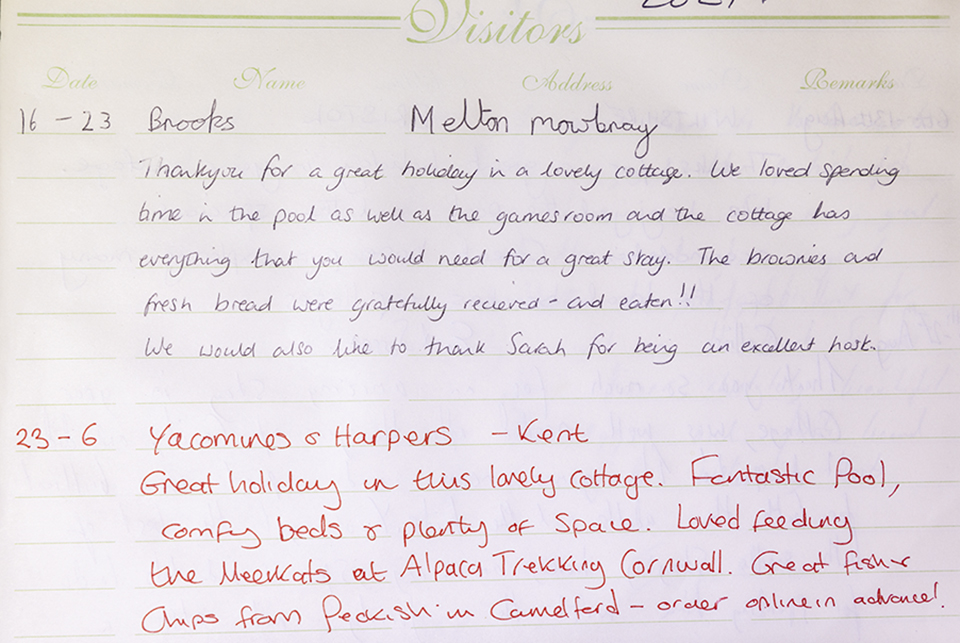 Visitors
Date Name Address Remarks
16 - 23 Brooks Melton Mowbray
Thankyou for a great holiday in a lovely cottage. We loved spending
time in the pool as well as the gamesroom and the cottage has
everything that you would need for a great stay. The brownies and
fresh bread were gratefully recieved - and eaten!!
We would also like to thank Sarah for being an excellent host.
23 - 6 Yacomines & Harpers - Kent
Great holiday in this lovely cottage. Fantastic Pool,
comfy beds & plenty of space. Loved feeding
the Meerkats at Alpaca Trekking Cornwall. Great fish &
Chips from Peckish in Camelford - order online in advance!